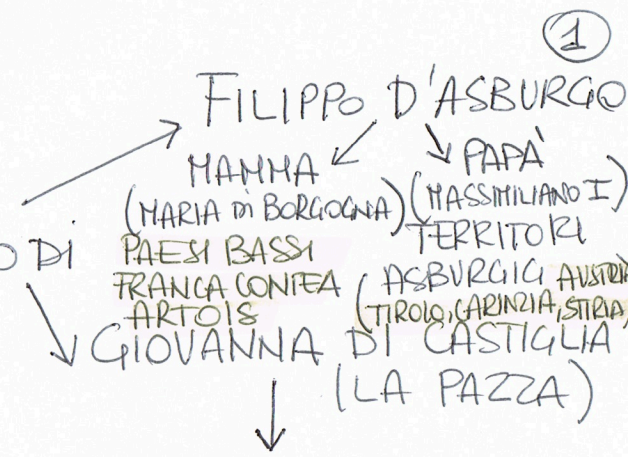 1
FILIPPO D'ASBURGO
MAMMA
PAPÀ
(MARIA DI BORGOGNA)
(MASSIMILIANO I)
O DI
PAESI BASSI
FRANCA CONTEA
ARTOIS
TERRITORI
ASBURGICI AUSTRIA
(TIROLO, CARINZIA, STIRIA,
GIOVANNA DI CASTIGLIA
(LA PAZZA)